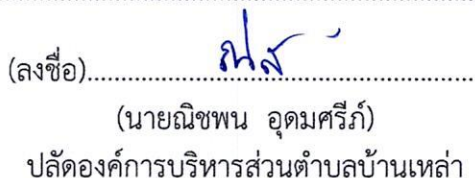 (ลงชื่อ)
(นายณิชพน อุดมศรีภ์)
ปลัดองค์การบริหารส่วนตำบลบ้านเหล่า